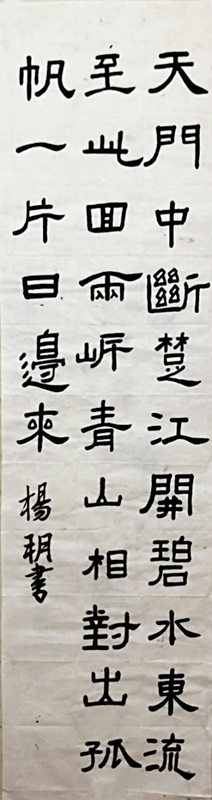 天門中斷楚江開碧水東流
至此回兩岸青山相對出孤
帆一片日邊來
楊玥書